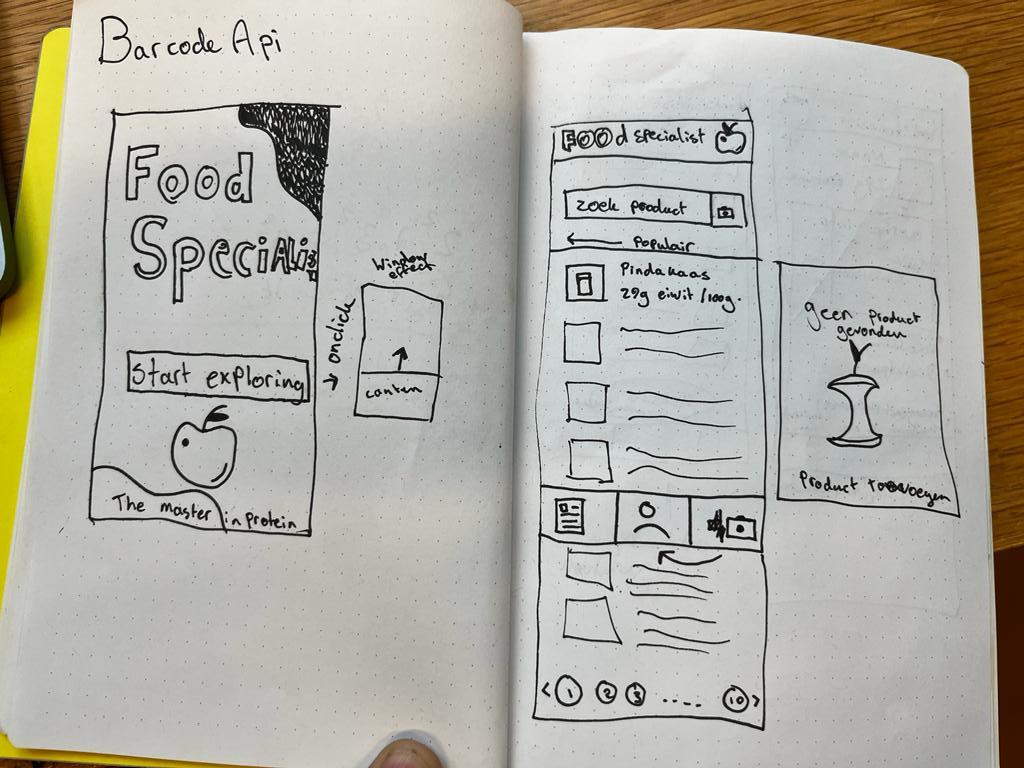 Barcode Api
Food
Specialis
Start exploring
The master in protein
onclick
Window
effect
FOOd specialist
zoek product
Populair
Pindakaas
29g eiwit /100g.
< 1 2 3 ..... 10 >
geen product
gevonden
Product toevoegen